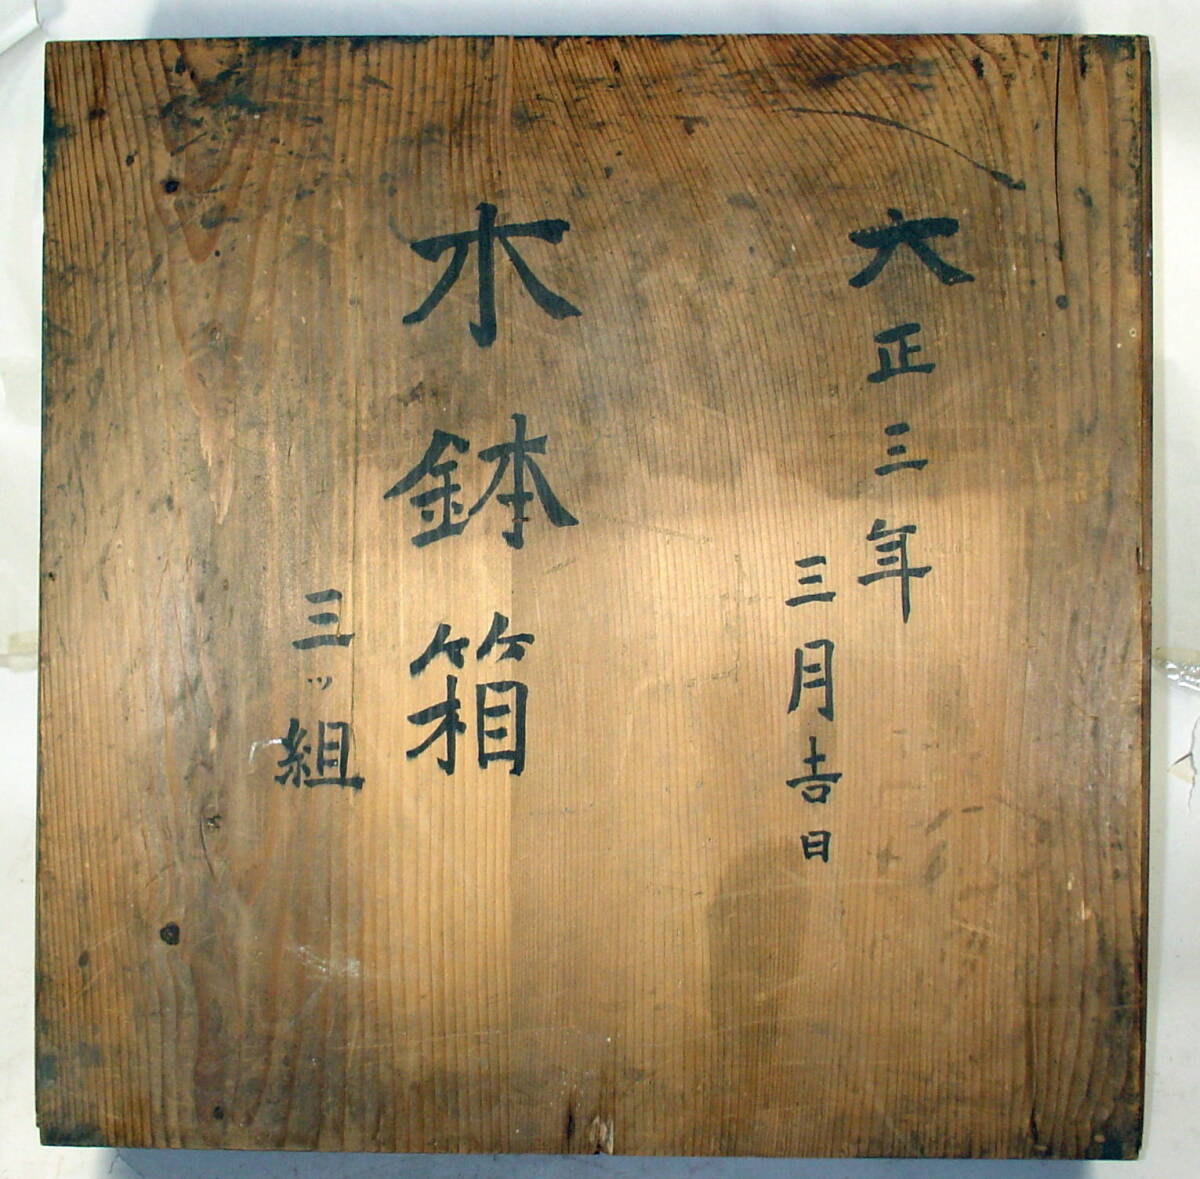 大正三年
三月吉日
木鉢箱
三ッ組